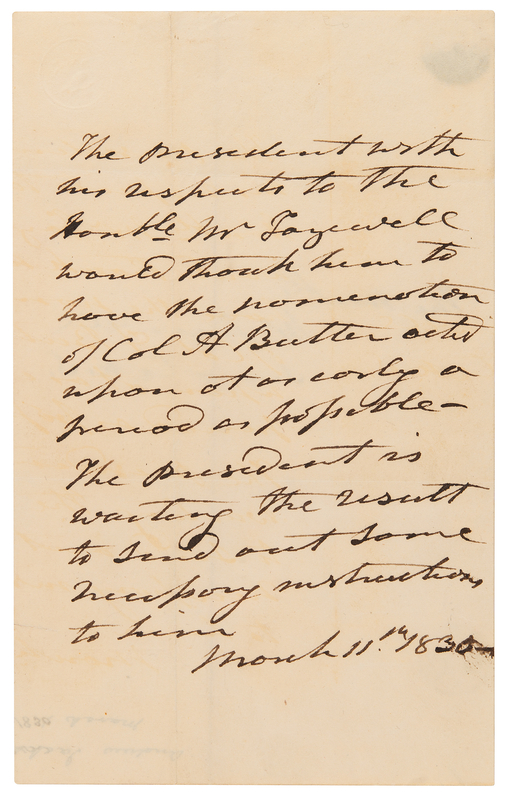 The president with
his respects to the
Honble Mr Tazewell
would thank him to
have the nomenation
of Col A Butler acted
upon at as early a
period as possible—
The president is
waiting the result
to send out some
necessary instructions
to him
March 11th 1830—